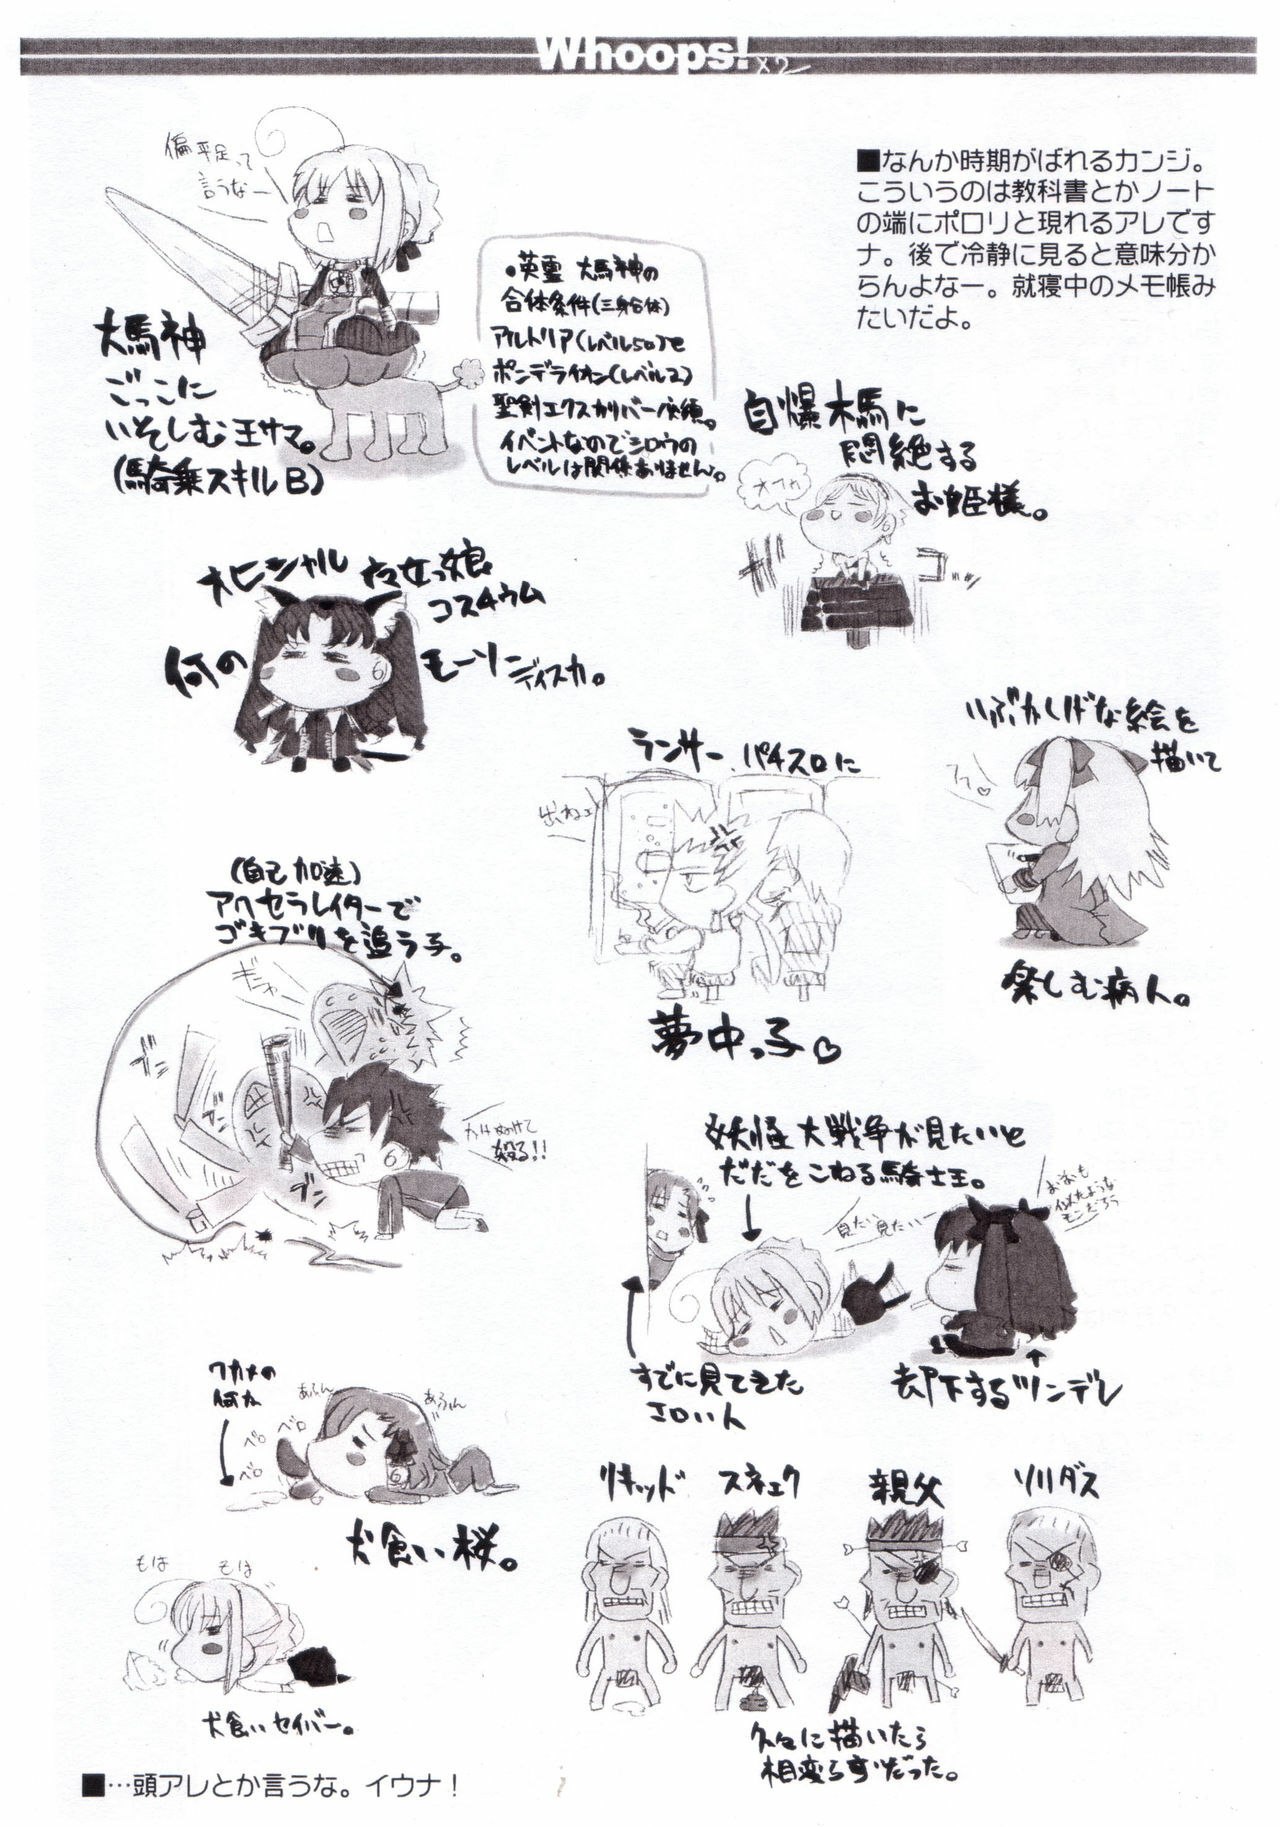 Whoops! ×2
■なんか時期がばれるカンジ。
こういうのは教科書とかノート
の端にポロリと現れるアレです
ナ。後で冷静に見ると意味分か
らんよなー。就寝中のメモ帳み
たいだよ。
偏平足って
言うなー
大馬神
ごっこに
いそしむ王サマ。
(騎乗スキルB)
・英霊 大馬神の
合体条件(三身合体)
アルトリア(レベル50)と
ポンデライオン(レベル2)
聖剣エクスカリバー
イベントなのでシロウの
レベルは関係ありません。
自爆木馬に
悶絶する
お姫様。
オヒシャル
コスチウム
何の
モーソー
ディスカ。
ランサー、パチスロに
出ねェ
夢中っ子♡
いぶかしげな絵を
描いて
楽しむ病人。
(自己加速)
アクセラレイターで
ゴキブリを追う子。
ギャー
殴る!!
妖怪大戦争が見たいと
だだをこねる騎士王。
見たい見たいー
おおも
似たような
モンだろう
すでに見てきた
エロい人
却下するツンデレ
ワカメの
何か
ベロ
ベロ
ベロ
あふん
あふん
犬食い桜。
もは
もは
犬食いセイバー。
リキッド
スネェク
親父
ソリダス
久々に描いたら
相変らずだった。
■…頭アレとか言うな。イウナ！